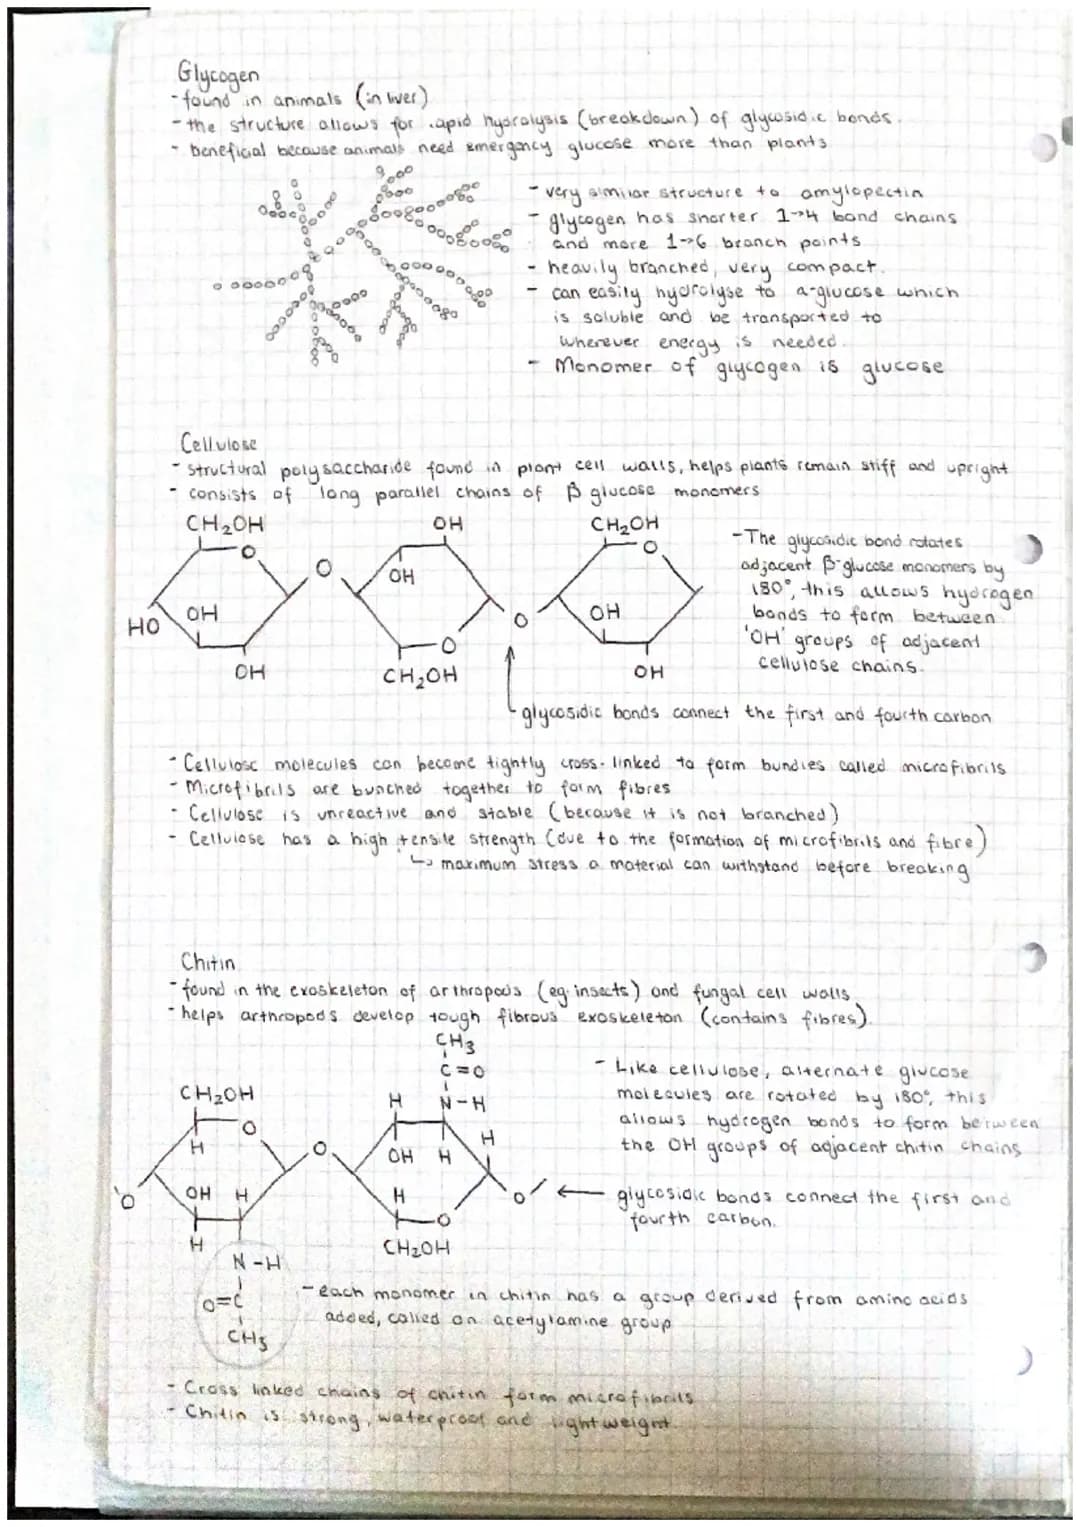 Glycogen
- found in animals (in liver)
- the structure allows for rapid hydrolysis (breakdown) of glycosidic bonds.
- beneficial because animals need emergency glucose more than plants
- very similar structure to amylopectin
- glycogen has shorter 1→4 bond chains
and more 1→6 branch points
- heavily branched, very compact.
- can easily hydrolyse to α-glucose which
is soluble and be transported to
wherever energy is needed.
- Monomer of glycogen is glucose
Cellulose
- structural polysaccharide found in plant cell walls, helps plants remain stiff and upright
- consists of long parallel chains of β glucose monomers
CH₂OH OH CH₂OH
O O OH O
HO OH O OH
OH O CH₂OH OH
- The glycosidic bond rotates
adjacent β-glucose monomers by
180°, this allows hydrogen
bonds to form between
'OH' groups of adjacent
cellulose chains.
glycosidic bonds connect the first and fourth carbon
- Cellulose molecules can become tightly cross-linked to form bundles called microfibrils
- Microfibrils are bunched together to form fibres
- Cellulose is unreactive and stable (because it is not branched)
- Cellulose has a high tensile strength (due to the formation of microfibrils and fibre)
↳ maximum stress a material can withstand before breaking
Chitin
- found in the exoskeleton of arthropods (eg. insects) and fungal cell walls
- helps arthropods develop tough fibrous exoskeleton (contains fibres).
CH₃
C=O
CH₂OH H N-H
O H O OH H H
O OH H H O O
H CH₂OH
N-H
O=C
CH₃
- Like cellulose, alternate glucose
molecules are rotated by 180°, this
allows hydrogen bonds to form between
the OH groups of adjacent chitin chains
← glycosidic bonds connect the first and
fourth carbon.
- each monomer in chitin has a group derived from amino acids
added, called an acetylamine group
- Cross linked chains of chitin form microfibrils
- Chitin is strong, waterproof and lightweight.